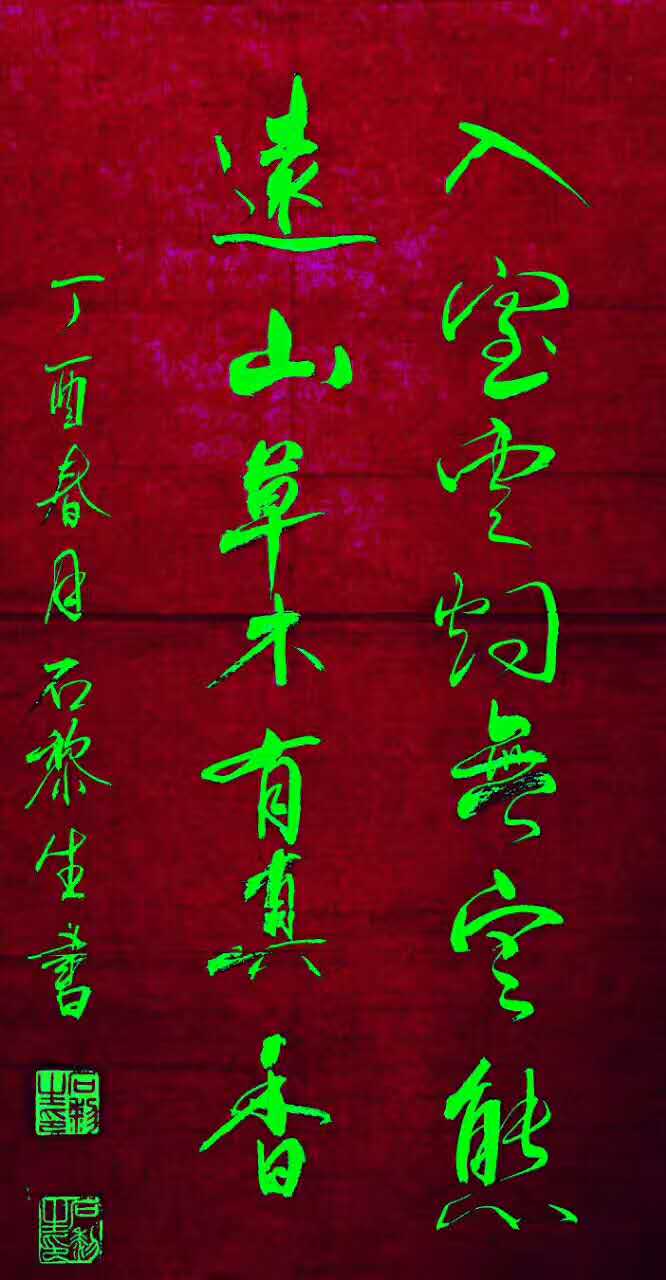 入室雲烟無定態
遠山草木有真香
丁酉春月石黎生書